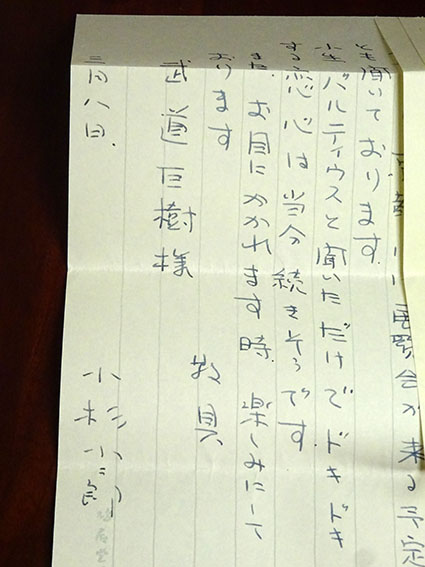 展覧会が来る予定
とも聞いております。
小生バルティウスと聞いただけでドキドキ
する恋心は当分続きそうです。
また、お目にかかれます時、楽しみにして
おります
敬具
武道巨樹様
小杉小二郎
三月八日、